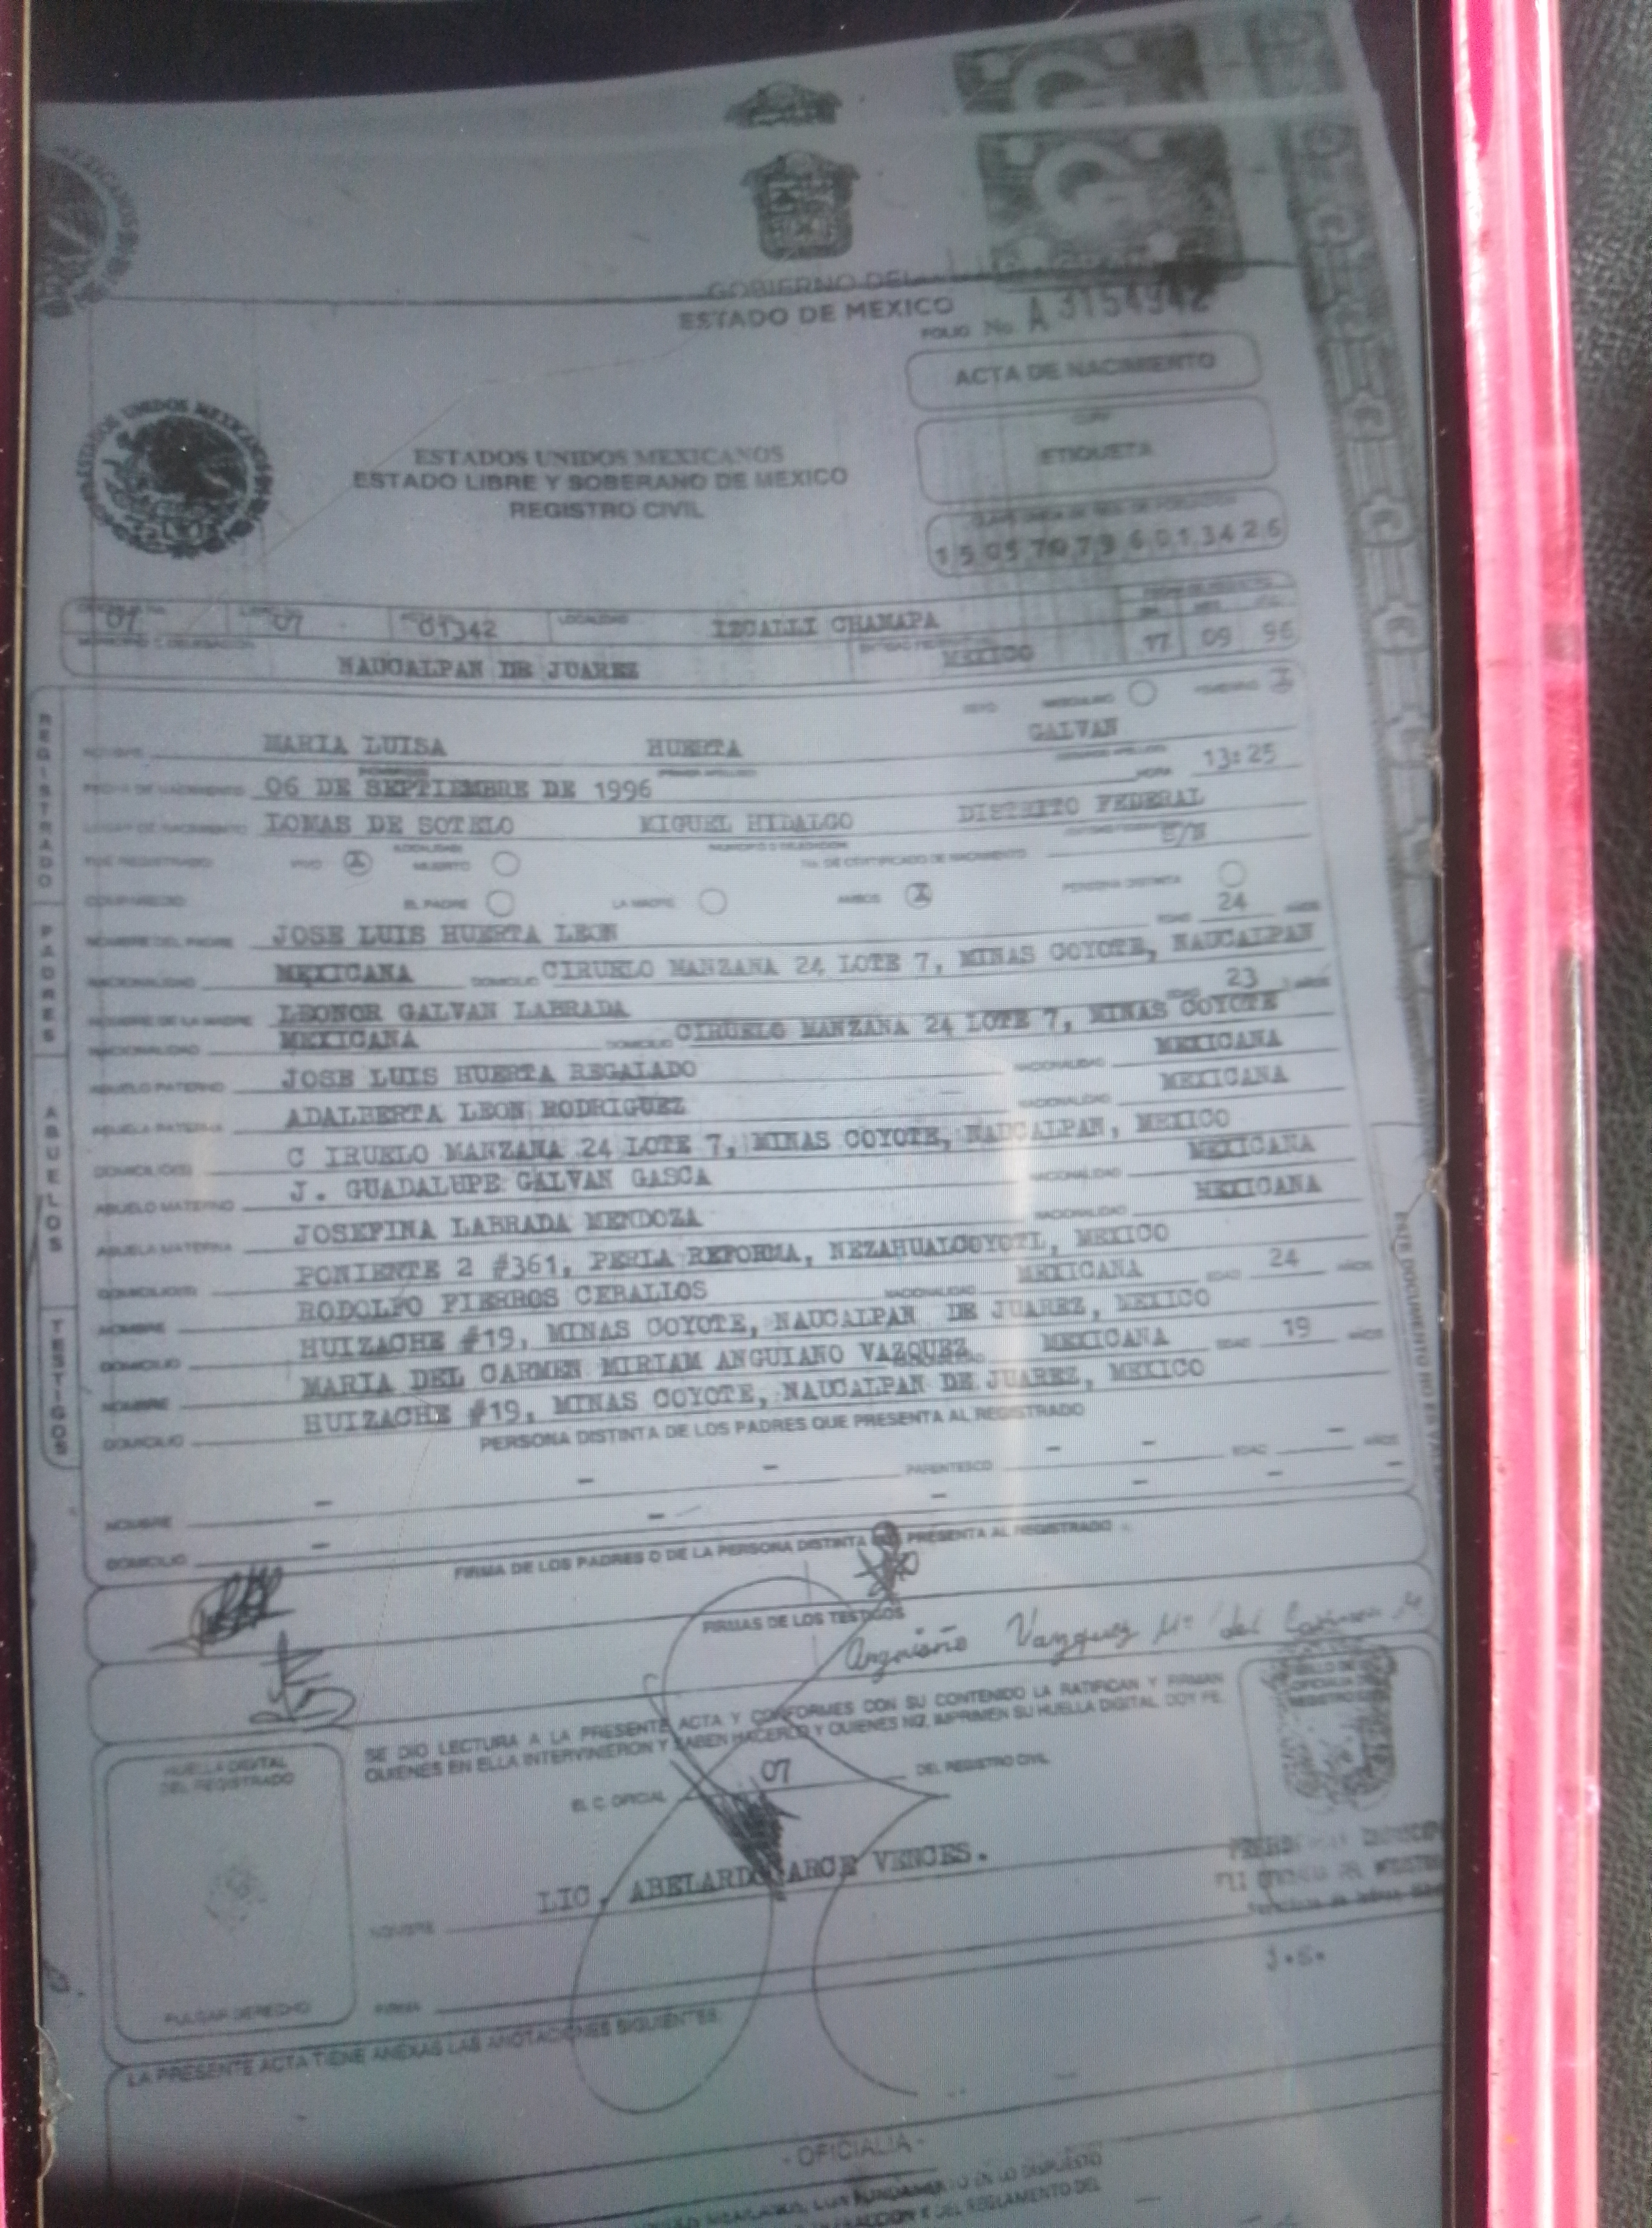 GOBIERNO DEL
ESTADO DE MEXICO
FOLIO No. A 3154942
ACTA DE NACIMIENTO
ETIQUETA
ESTADOS UNIDOS MEXICANOS
ESTADO LIBRE Y SOBERANO DE MEXICO
REGISTRO CIVIL
07 07 01342 LOCALIDAD IZCALLI CHAMAPA
NAUCALPAN DE JUAREZ MEXICO 17 09 96
REGISTRADO
SEXO MASCULINO FEMENINO X
NOMBRE MARIA LUISA HUERTA GALVAN
FECHA DE NACIMIENTO 06 DE SEPTIEMBRE DE 1996 HORA 13:25
LUGAR DE NACIMIENTO LOMAS DE SOTELO MIGUEL HIDALGO DISTRITO FEDERAL
FUE REGISTRADO VIVO X MUERTO No. DE CERTIFICADO DE NACIMIENTO
COMPARECIO EL PADRE LA MADRE AMBOS X PERSONA DISTINTA
PADRES
NOMBRE DEL PADRE JOSE LUIS HUERTA LEON EDAD 24 AÑOS
NACIONALIDAD MEXICANA DOMICILIO CIRUELO MANZANA 24 LOTE 7, MINAS COYOTE, NAUCALPAN
NOMBRE DE LA MADRE LEONOR GALVAN LABRADA EDAD 23 AÑOS
NACIONALIDAD MEXICANA DOMICILIO CIRUELO MANZANA 24 LOTE 7, MINAS COYOTE
ABUELOS
ABUELO PATERNO JOSE LUIS HUERTA REGALADO NACIONALIDAD MEXICANA
ABUELA PATERNA ADALBERTA LEON RODRIGUEZ NACIONALIDAD MEXICANA
DOMICILIO(S) C IRUELO MANZANA 24 LOTE 7, MINAS COYOTE, NAUCALPAN, MEXICO
ABUELO MATERNO J. GUADALUPE GALVAN GASCA NACIONALIDAD MEXICANA
ABUELA MATERNA JOSEFINA LABRADA MENDOZA NACIONALIDAD MEXICANA
DOMICILIO(S) PONIENTE 2 #361, PERLA REFORMA, NEZAHUALCOYOTL, MEXICO
TESTIGOS
NOMBRE RODOLFO PIERROS CEBALLOS NACIONALIDAD MEXICANA EDAD 24 AÑOS
DOMICILIO HUIZACHE #19, MINAS COYOTE, NAUCALPAN DE JUAREZ, MEXICO
NOMBRE MARIA DEL CARMEN MIRIAM ANGUIANO VAZQUEZ MEXICANA EDAD 19 AÑOS
DOMICILIO HUIZACHE #19, MINAS COYOTE, NAUCALPAN DE JUAREZ, MEXICO
PERSONA DISTINTA DE LOS PADRES QUE PRESENTA AL REGISTRADO
NOMBRE - - - PARENTESCO - - EDAD - AÑOS
DOMICILIO - - - - - -
FIRMA DE LOS PADRES O DE LA PERSONA DISTINTA QUE PRESENTA AL REGISTRADO
FIRMAS DE LOS TESTIGOS
Anguiano Vazquez Ma del Carmen M
SE DIO LECTURA A LA PRESENTE ACTA Y CONFORMES CON SU CONTENIDO LA RATIFICAN Y FIRMAN
QUIENES EN ELLA INTERVINIERON Y SABEN HACERLO Y QUIENES NO, IMPRIMEN SU HUELLA DIGITAL DOY FE.
HUELLA DIGITAL
DEL REGISTRADO
EL C. OFICIAL 07 DEL REGISTRO CIVIL
NOMBRE LIC. ABELARDO ARCE VENCES.
FIRMA
PULGAR DERECHO
LA PRESENTE ACTA TIENE ANEXAS LAS ANOTACIONES SIGUIENTES:
- OFICIALIA -